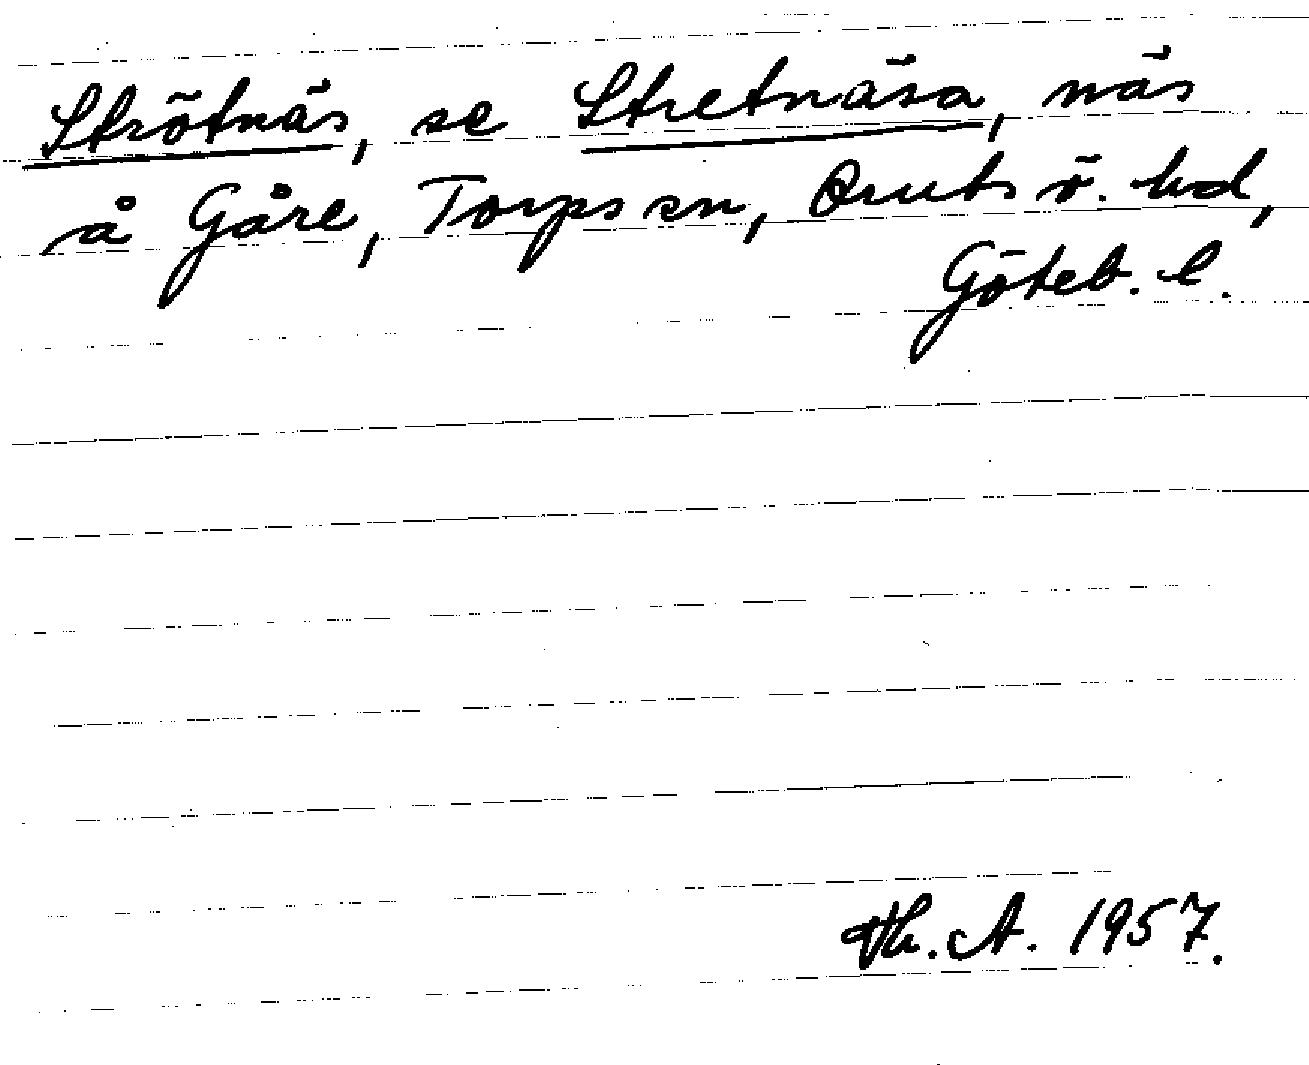 Strötnäs, se Stretnäsa, näs
å Gåre, Torps sn, Orusts ö. hd,
Göteb. l.
Th. A. 1957.